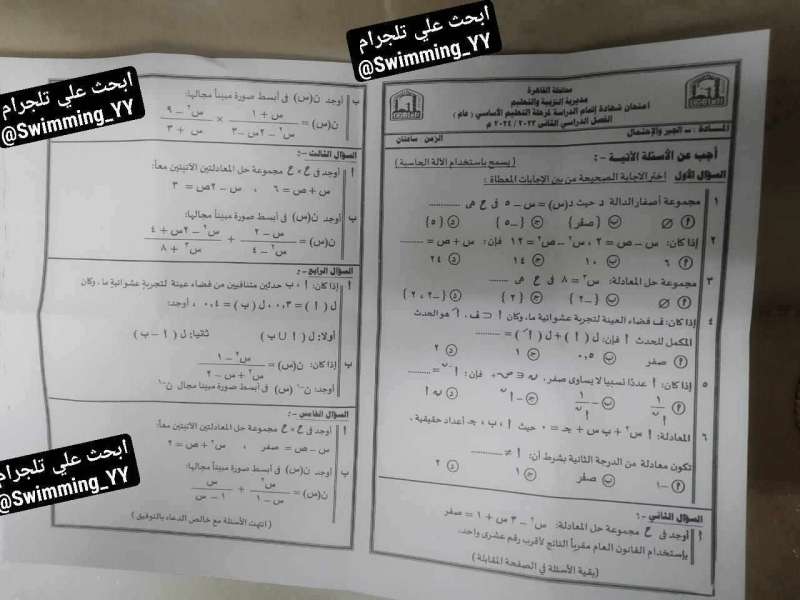 ابحث علي تلجرام
@Swimming_YY
ابحث علي تلجرام
@Swimming_YY
ابحث علي تلجرام
@Swimming_YY
محافظة القاهرة
مديرية التربية والتعليم
امتحان شهادة إتمام الدراسة لمرحلة التعليم الأساسي ( عام )
الفصل الدراسي الثاني ٢٠٢٣ / ٢٠٢٤ م
المادة : الجبر والإحتمال
الزمن : ساعتان
أجب عن الأسئلة الآتية :-
( يسمح باستخدام الآلة الحاسبة )
السؤال الأول اختر الاجابة الصحيحة من بين الإجابات المعطاة :
١ مجموعة أصفار الدالة د حيث د(س) = س - ٥ في ح هى ........
أ ∅ ب {صفر} ج {-٥} د {٥}
٢ إذا كان: س - ص = ٢ ، س٢ - ص٢ = ١٢ فإن: س + ص = ........
أ ٦ ب ١٠ ج ١٤ د ٢٤
٣ مجموعة حل المعادلة: س٢ = ٨ في ح هى ........
أ ∅ ب {-٢} ج {٢} د {-٢ ، ٢}
٤ إذا كان: ف فضاء العينة لتجربة عشوائية ما، وكان أ ⊂ ف، أَ هو الحدث
المكمل للحدث أ فإن: ل ( أ ) + ل ( أَ ) = ........
أ صفر ب ٠,٥ ج ١ د ٢
٥ إذا كان: أ عددًا نسبيا لا يساوى صفر، ن ∈ ص+، فإن: أ-ن = ........
أ ١/أن ب -١/أن ج -أن د ن أ
٦ المعادلة: أ س٢ + ب س + جـ = ٠ حيث أ ، ب ، جـ أعداد حقيقية ،
تكون معادلة من الدرجة الثانية بشرط أن: أ ≠ ........
أ -١ ب صفر ج ١ د ٢
السؤال الثاني :-
أ أوجد في ح مجموعة حل المعادلة: س٢ - ٣ س + ١ = صفر
بإستخدام القانون العام مقرباً الناتج لأقرب رقم عشرى واحد.
(بقية الأسئلة في الصفحة المقابلة)
ب أوجد ن(س) في أبسط صورة مبيناً مجالها:
ن(س) = (س + ١)/(س٢ - ٢س - ٣) × (س٢ - ٩)/(س + ٣)
السؤال الثالث :-
أ أوجد في ح × ح مجموعة حل المعادلتين الآتيتين معاً:
س + ص = ٦ ، س - ٢ص = ٣
ب أوجد ن(س) في أبسط صورة مبيناً مجالها:
ن(س) = (س - ٢)/(س٢ - ٤) + (س٢ - ٢س + ٤)/(س٣ + ٨)
السؤال الرابع :-
أ إذا كان: أ ، ب حدثين متنافيين من فضاء عينة لتجربة عشوائية ما، وكان
ل ( أ ) = ٠,٣ ، ل ( ب ) = ٠,٤ ، أوجد:
أولا: ل ( أ ∪ ب ) ثانيا: ل ( أ - ب )
ب إذا كان: ن(س) = (س٢ - ١)/(س٢ + س - ٢)
أوجد: ن-١ (س) في أبسط صورة مبيناً مجال ن-١
السؤال الخامس :-
أ أوجد في ح × ح مجموعة حل المعادلتين الآتيتين معاً:
س - ص = صفر ، س٢ + ص = ٢
ب أوجد ن(س) في أبسط صورة مبيناً مجالها:
ن(س) = س٢/(س - ١) + س/(١ - س)
( انتهت الأسئلة مع خالص الدعاء بالتوفيق )